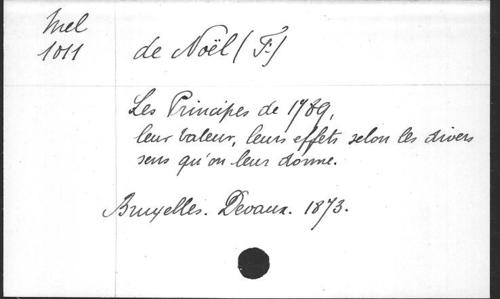 Mel
1011
de Noël (F.)
Les Principes de 1789,
leur valeur, leurs effets selon les divers
sens qu'on leur donne.
Bruxelles. Devaux. 1873.